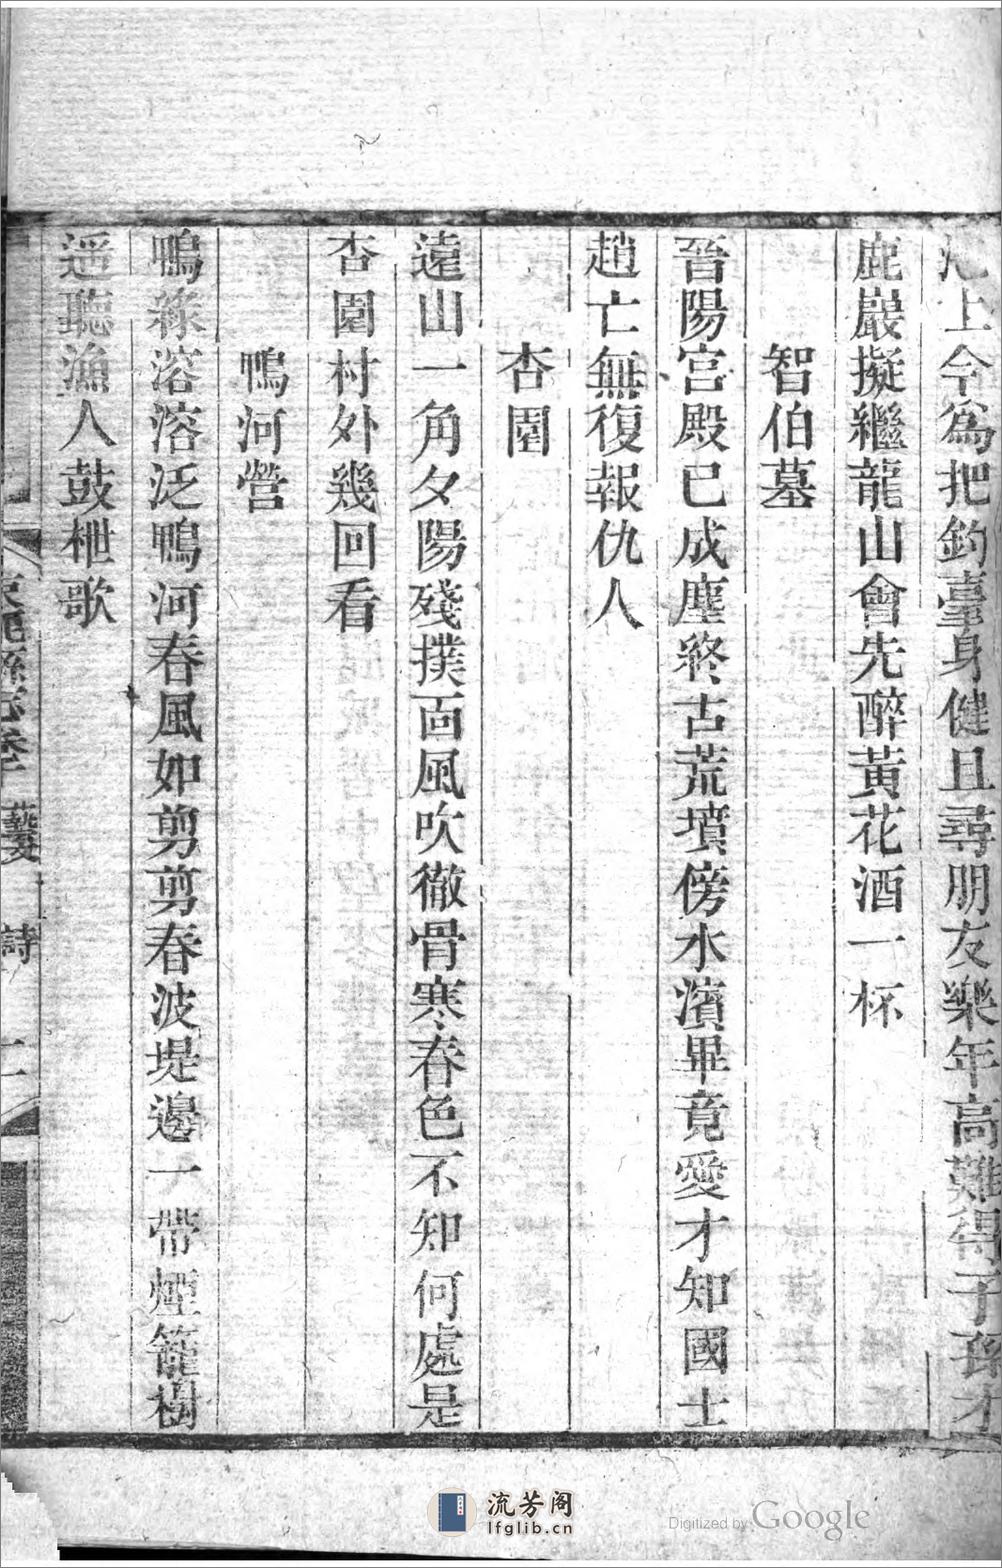 上今為把釣臺身健且尋朋友樂年高難得子孫才
鹿巖擬繼龍山會先醉黃花酒一杯
智伯墓
晉陽宮殿已成塵終古荒墳傍水濱畢竟愛才知國士
趙亡無復報仇人
杏園
遠山一角夕陽殘撲面風吹徹骨寒春色不知何處是
杏園村外幾回看
鴨河營
鴨綠溶溶泛鴨河春風如剪剪春波堤邊一帶煙籠樹
遥聽漁人鼓枻歌
縣志卷
藝文
詩
流芳阁
lfglib.cn
Digitized by Google